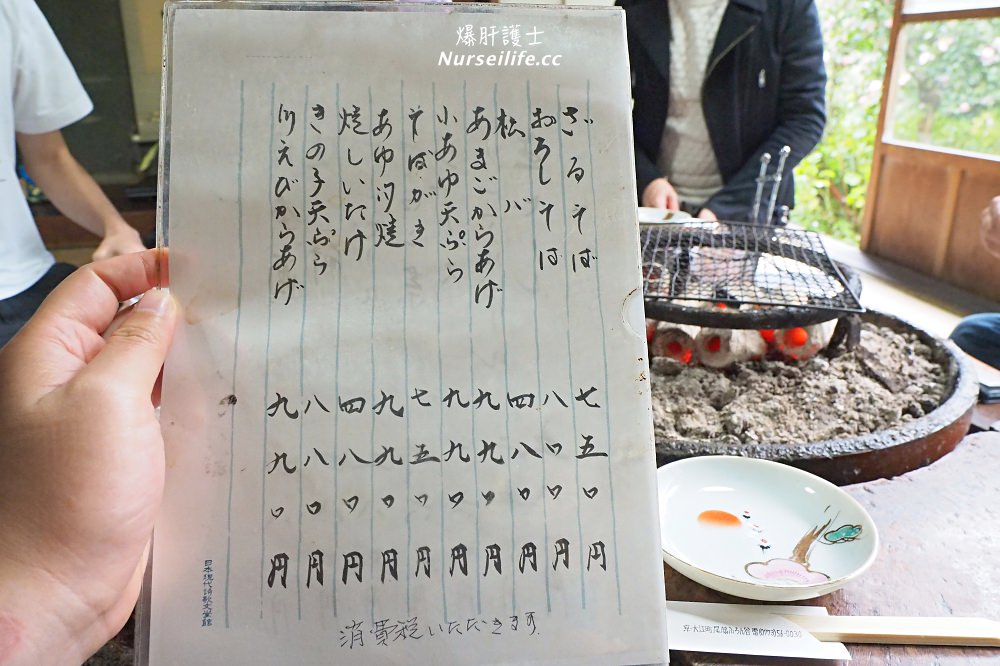 爆肝護士
Nurseilife.cc
ざるそば 七五〇円
おろしそば 八〇〇円
松バ 四八〇円
あまごからあげ 九九〇円
小あゆ天ぷら 九九〇円
そばがき 七五〇円
あゆ汐焼 九九〇円
焼しいたけ 四八〇円
きの子天ぷら 八八〇円
川えびからあげ 九九〇円
消費税いただきます.
日本現代詩歌文学館
京・大江町尾藤 56-0030